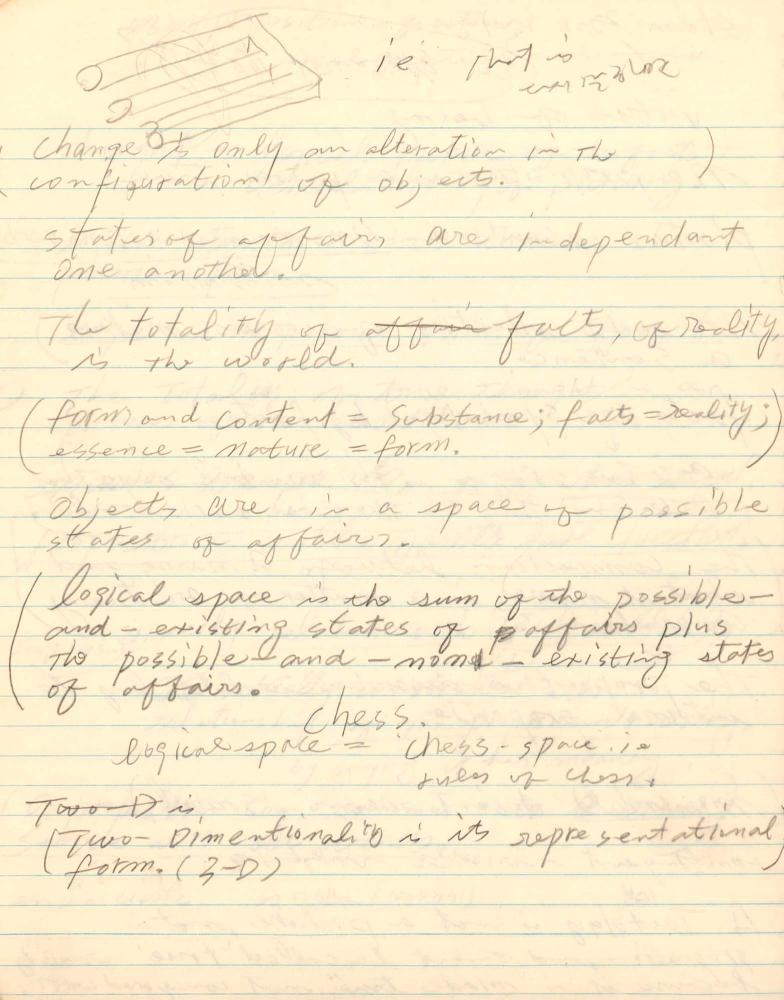 ie that is
(Change is only an alteration in the )
configuration of objects.
states of affairs are independant
one another.
The totality of affair facts, of reality,
is the world.
(form and content = substance; facts = reality;
essence = nature = form.)
Objects are in a space of possible
states of affairs.
(logical space is the sum of the possible-
and-existing states of affairs plus
the possible-and-non-existing states
of affairs.
Chess.
logical space = chess-space. ie
rules of chess.
Two-D is
(Two-Dimentionality is its representational
form. (3-D))